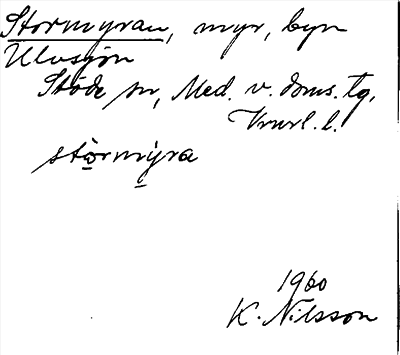 Stormyran, myr, byn
Ulvsjön
Stöde sn, Med. v. doms. tg.
Vnrl. l.
stòrmỳra
1960
K. Nilsson